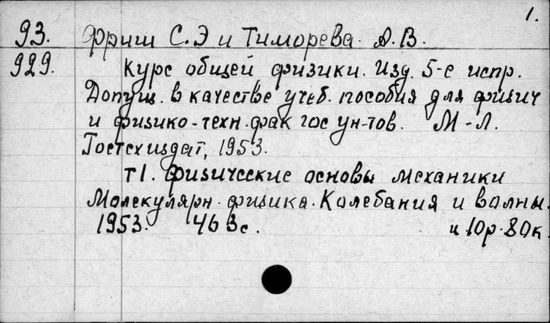 1.
93. Фриш С.Э и Тиморева А.В.
929. Курс общей физики. Изд. 5-е испр.
Допущ. в качестве учеб. пособия для физич
и физико-техн. фак гос ун-тов. М-Л.
Гостехиздат, 1953.
т1. Физические основы механики
Молекулярн. физика. Колебания и волны.
1953. 463с. ц 10р. 80к.